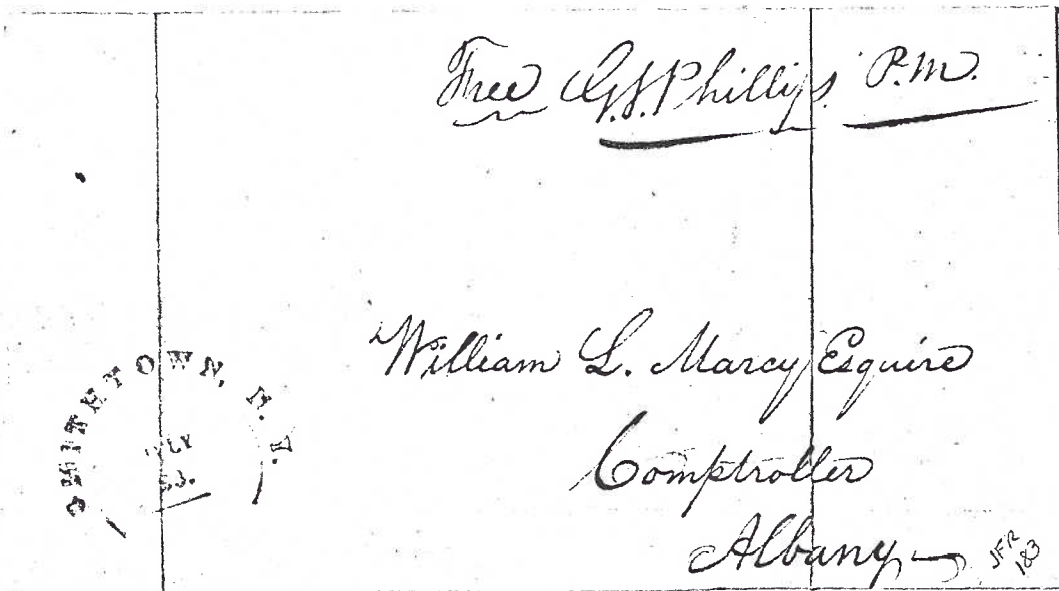 Free G.S. Phillips. P.M.
William L. Marcy Esquire
Comptroller
Albany
SMITHTOWN, N.Y.
JULY
JFR
183